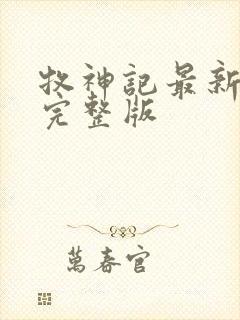 牧神記最新
完整版
萬春官